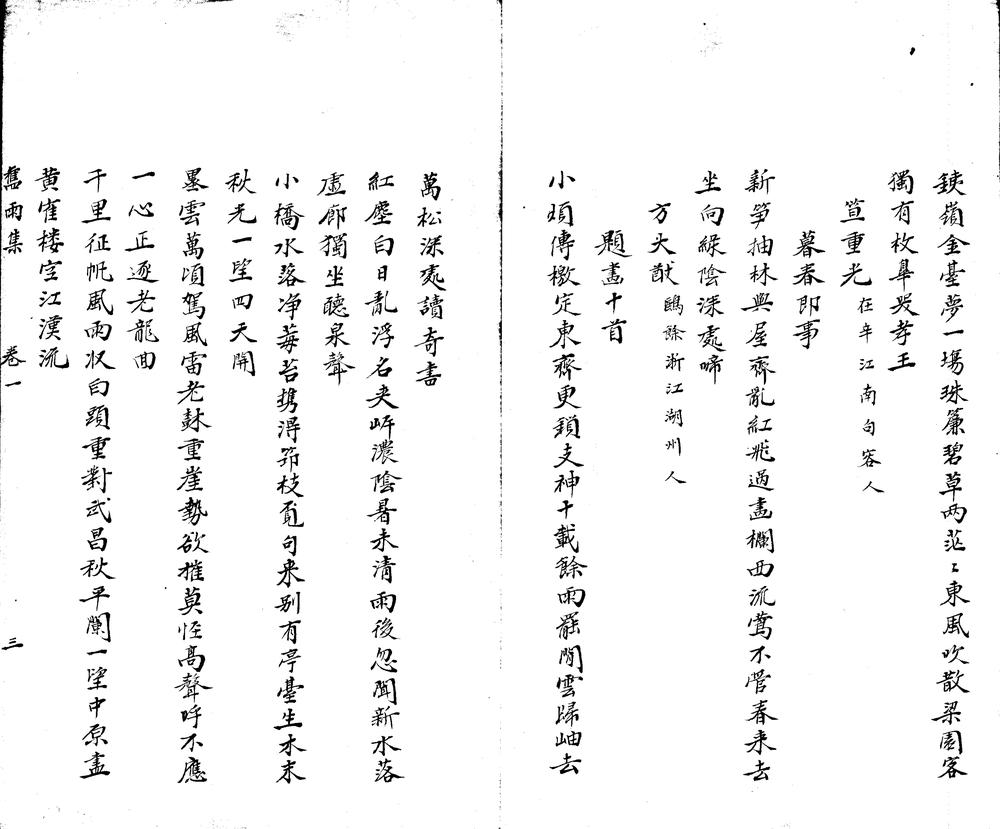 銕嶺金臺夢一場珠簾碧草两茫〻東風吹散梁園客
獨有枚皐哭孝王
笪重光在辛江南句容人
暮春即事
新笋抽林與屋齊亂紅飛過畵欄西流鶯不管春来去
坐向綠陰深處啼
方大猷鷗餘浙江湖州人
題畵十首
小頑傳檄定東齊更鎖支神十載餘雨罷閒雲歸岫去
萬松深處讀奇書
紅塵白日亂浮名夹岍濃陰暑未清雨後忽聞新水落
虛廊獨坐聽泉聲
小橋水落净莓苔携得笻枝覔句来别有亭臺生木末
秋光一望四天開
墨雲萬頃駕風雷老龝重崖勢欲摧莫怪髙聲呼不應
一心正逐老龍回
千里征帆風雨収白頭重對武昌秋平闌一望中原盡
黄隺楼空江漢流
舊雨集 卷一 三